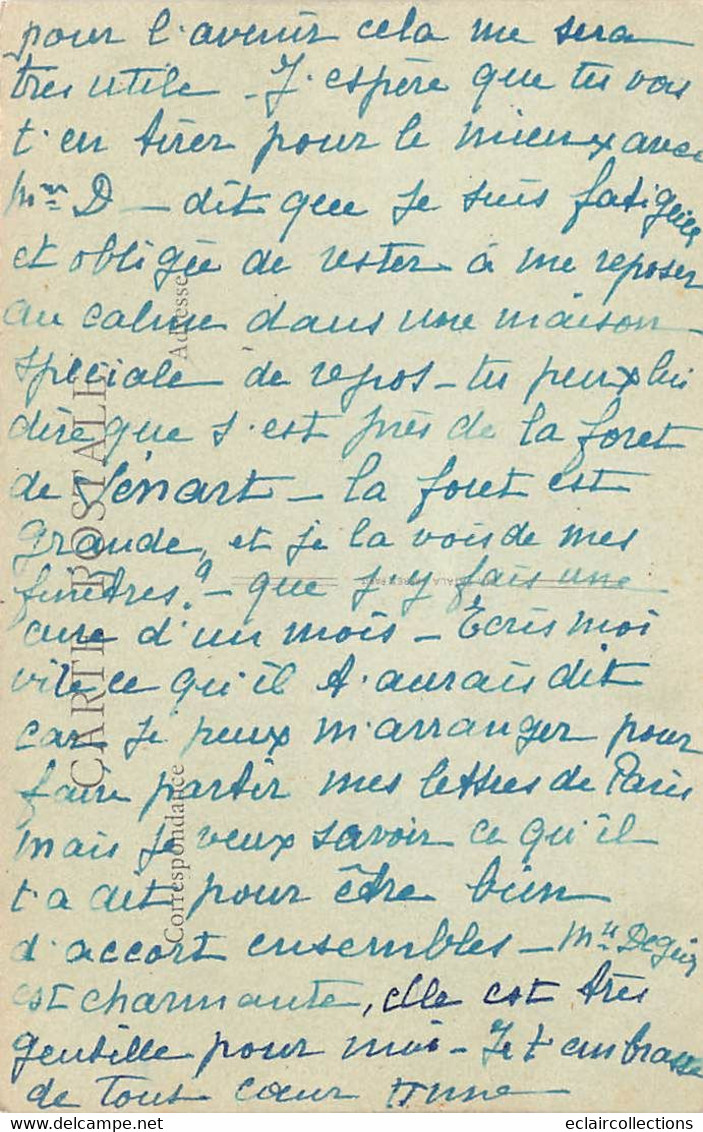 pour l'avenir cela me sera
très utile - J'espère que tu vas
t'en tirer pour le mieux avec
Mme D - dit que je suis fatiguée
et obligée de rester à me reposer
au calme dans une maison
spéciale de repos - tu peux lui
dire que s'est près de la foret
de Sénart - la foret est
grande, et je la vois de mes
finêtres. - que j'y fais une
cure d'un mois - Ecris moi
vite ce qu'il t'aurais dit
car je peux m'arranger pour
faire partir mes lettres de Paris
mais je veux savoir ce qu'il
t'a dit pour être bien
d'accort ensembles - Mlle
est charmante, elle est très
gentille pour moi - Je t'embrasse
de tout cœur
CARTE POSTALE
Correspondance
Adresse
eclaircollections.com